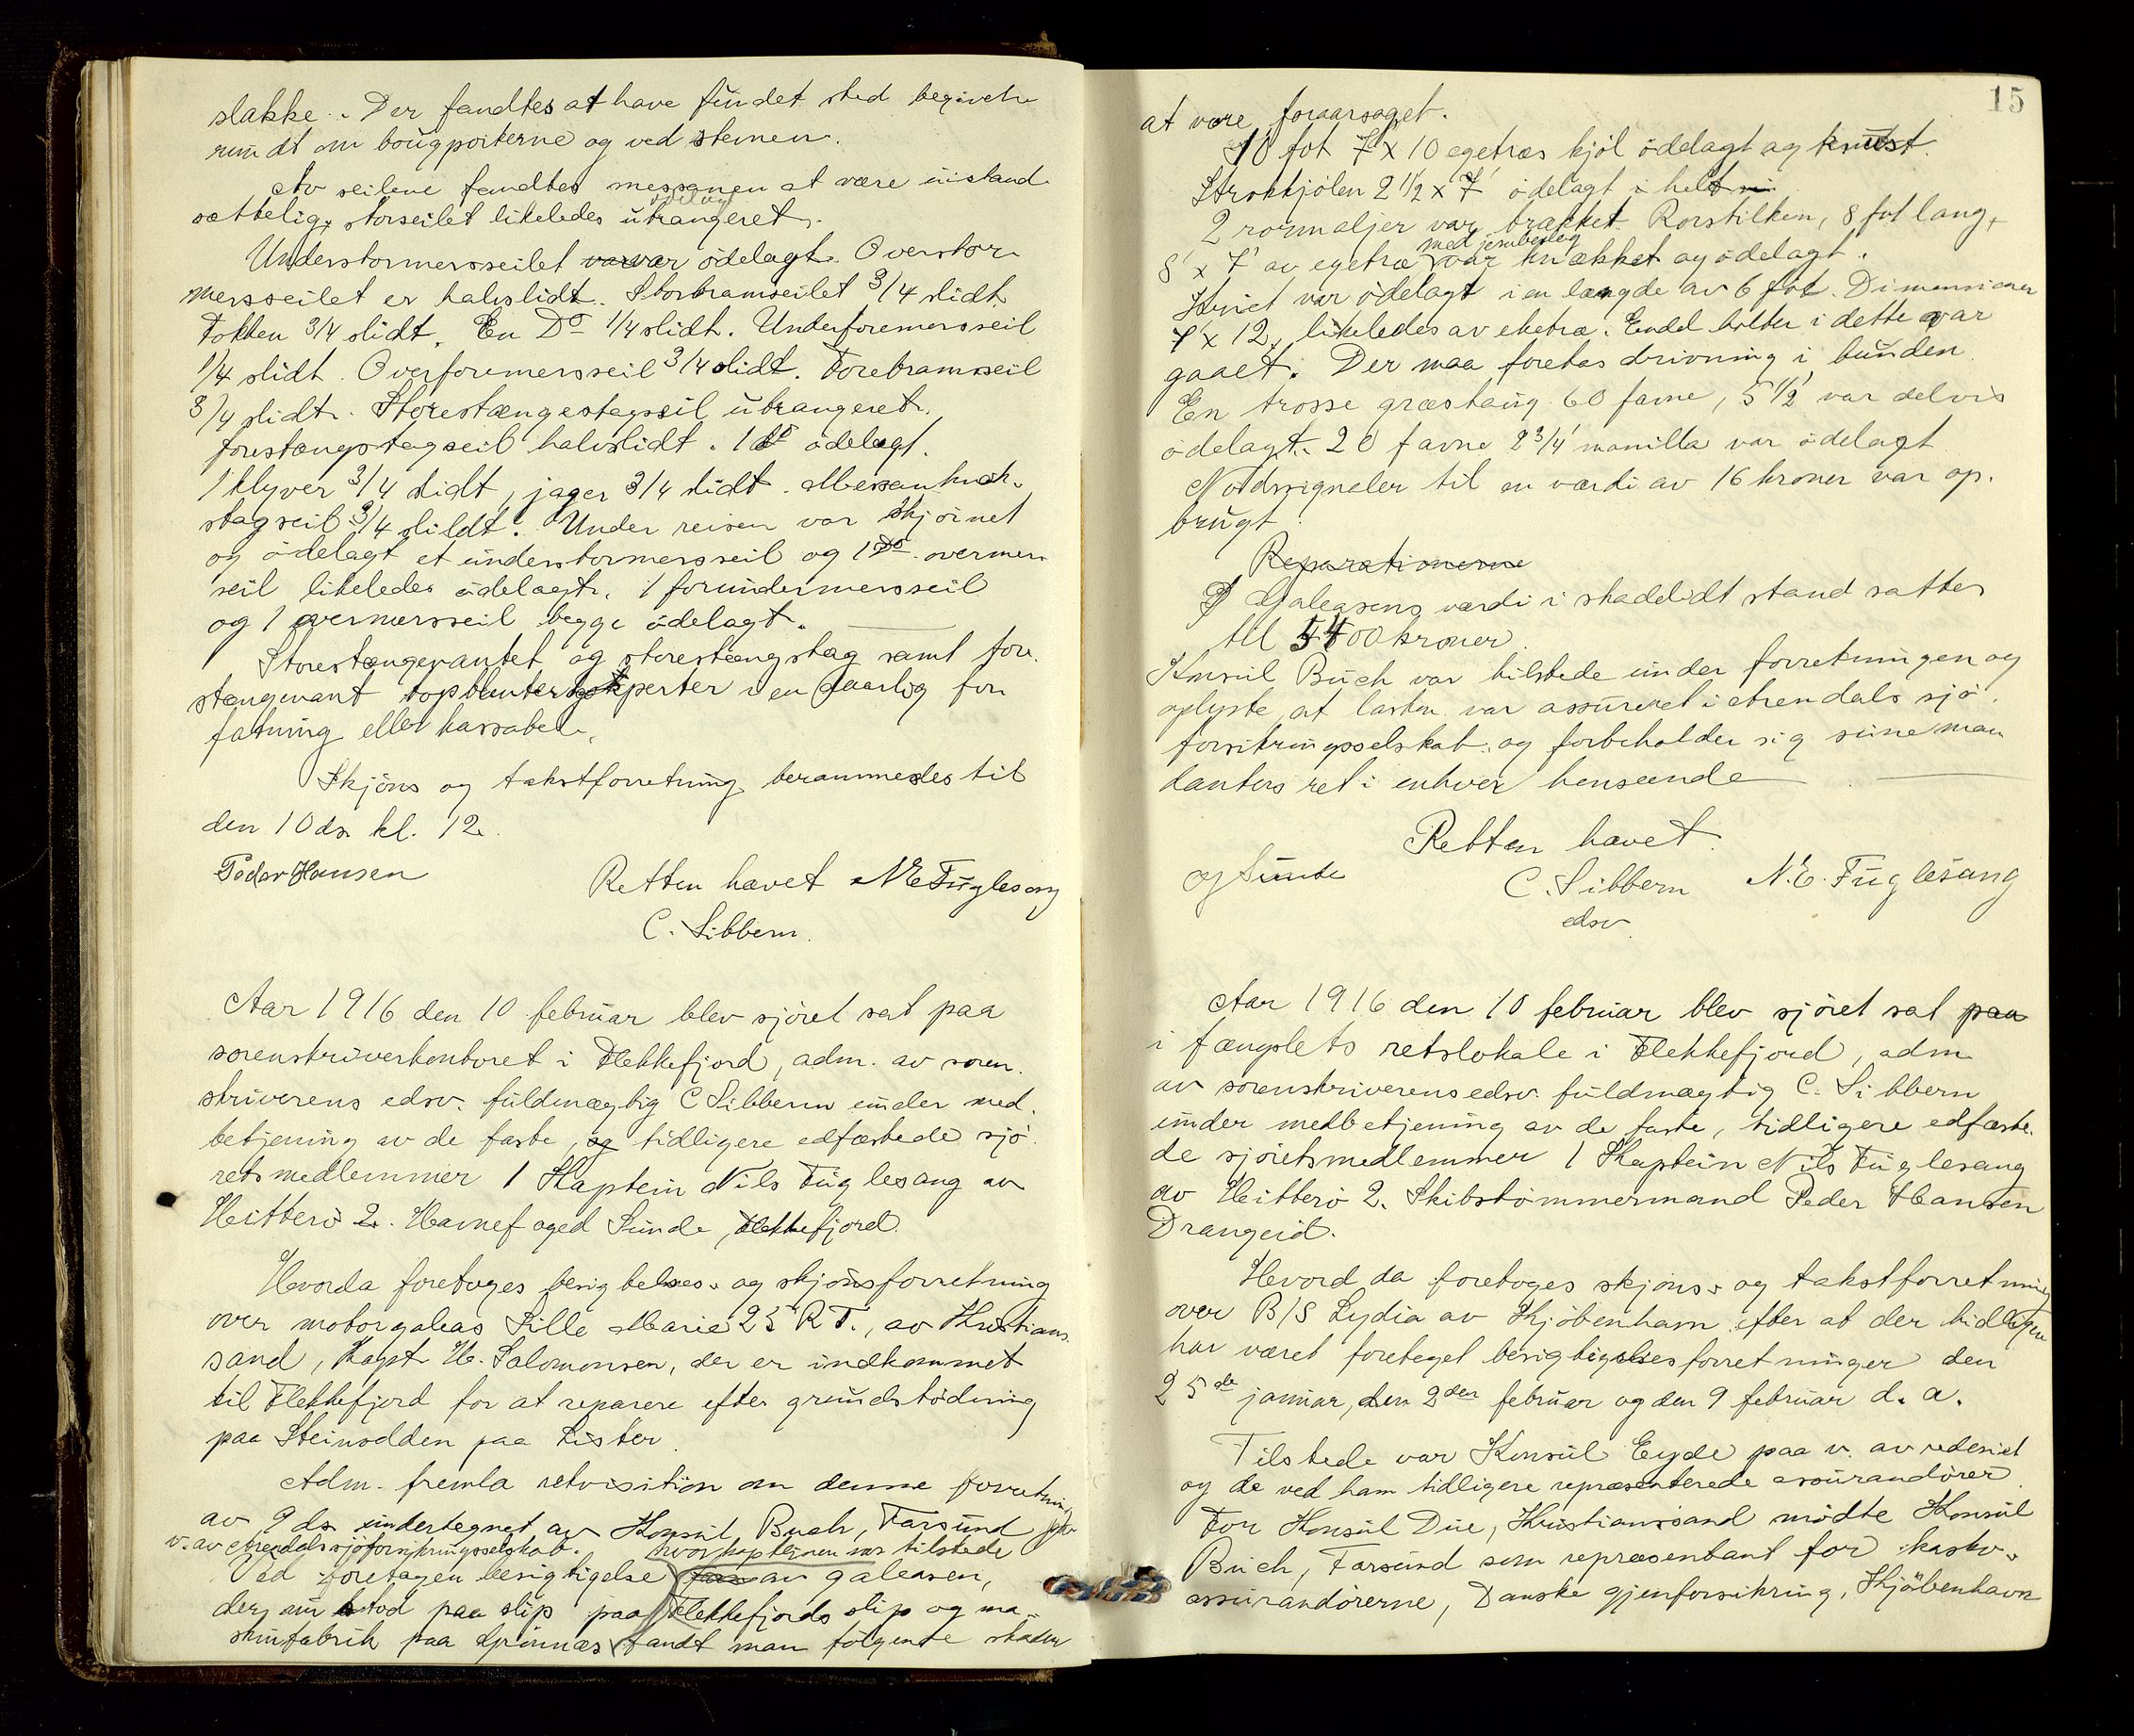 slakke. Der fandtes at have fundet sted begivelse
rundt om bougporterne og ved stevnen.
Av seilene fandtes messanen at være iistand
sættelig, storseilet likeledes utrangeret.
ödelagt
Understormersseilet var var ödelagt. Overstor
mersseilet er halvslidt. Storbramseilet 3/4 slidt
Fokken 3/4 slidt. En Do 1/4 slidt. Underforemersseil
1/4 slidt. Overforemersseil 3/4 slidt. Forebramseil
3/4 slidt. Storestængestagseil utrangeret.
forestængstagseil halvslidt. 1 do ödelagt.
1 klyver 3/4 slidt, jager 3/4 slidt. Messan
stagseil 3/4 slidt. Under reisen var skjönnet
og ödelagt et understormersseil og 1 Do overmers
seil likeledes ödelagt. 1 forundermersseil
og 1 overmersseil begge ödelagt.
Storestængevantet og storestængstag samt fore
stængevant i en daarlig for
fatning eller kassabel.
Skjöns og takstforretning berammedes til
den 10 ds. kl. 12.
Peder Hansen
Retten hævet N E Fuglesang
C. Sibbern.
Aar 1916 den 10 februar blev sjöret sat paa
sorenskriverkontoret i Flekkefjord, adm. av soren
skriverens edsv. fuldmægtig C Sibbern under med
betjening av de faste, og tidligere edfæstede sjö
retsmedlemmer 1 Kaptein Nils Fuglesang av
Hitterö 2. Havnefoged Sunde, Flekkefjord.
Hvorda foretoges besigtelses- og skjönsforretning
over motorgaleas Lille Marie 25 R T., av Kristians
sand, Kapt. H. Salomonsen, der er indkommet
til Flekkefjord for at reparere efter grundstödning
paa Steinodden paa Lister.
Adm. fremla rekvisition om denne forretning
av 9 ds. undertegnet av Konsul Buch, Farsund paa
v. av Arendals sjöforsikringsselskab. hvor kapteinen var tilstede
Ved foretagen besigtigelse av galeasen,
der nu stod paa slip paa Flekkefjords slip og ma-
skinfabrik paa Grönnæs fandt man fölgende skader
15
at være foraarsaget.
10 fot 7 x 10 egetræs kjöl ödelagt og knust.
Straakjölen 2 1/2 x 7" ödelagt i helt
2 rormaljer var brækket. Rorstilken, 8 fot lang,
med jernbeslag
8" x 7" av egetræ var knækket og ödelagt.
Knæet var ödelagt i en længde av 6 fot. Dimensioner
7" x 12, likeledes av eketræ. Endel bolter i dette var
gaaet. Der maa foretas drivning i bunden
En trosse græstaug 60 favne, 5 1/2" var delvis
ödelagt. 20 favne 2 3/4" manilla var ödelagt
Nödsignaler til en værdi av 16 kroner var op-
brugt.
Reparationerne
Galeasens værdi i skadelidt stand sattes
til 5400 kroner.
Konsul Buch var tilstede under forretningen og
oplyste at lasten var assureret i Arendals sjö
forsikringsselskab, og forbeholder sig sine man
danters ret i enhver henseende
Retten hævet.
Og Sunde
C. Sibbern
N. E. Fuglesang
edsv.
Aar 1916 den 10 februar blev sjöret sat paa
i fængslets retslokale i Flekkefjord, adm.
av sorenskriverens edsv. fuldmægtig C. Sibbern
under medbetjening av de faste, tidligere edfæste-
de sjöretsmedlemmer 1 Kaptein Nils Fuglesang
av Hitterö 2. Skibstömmermand Peder Hansen
Drangeid.
Hvord da foretoges skjöns- og takstforretning
over B/S Lydia av Kjöbenhavn efter at der tidligere
har været foretaget besigtigelsesforretninger den
25de januar, den 2den februar og den 9 februar d. a.
Tilstede var Konsul Eyde paa v. av rederiet
og de ved ham tidligere repræsenterede assurandörer.
For Konsul Due, Kristianssand mödte Konsul
Buch, Farsund som repræsentant for kasko-
assurandörerne, Danske gjenforsikring, Kjöbenhavn